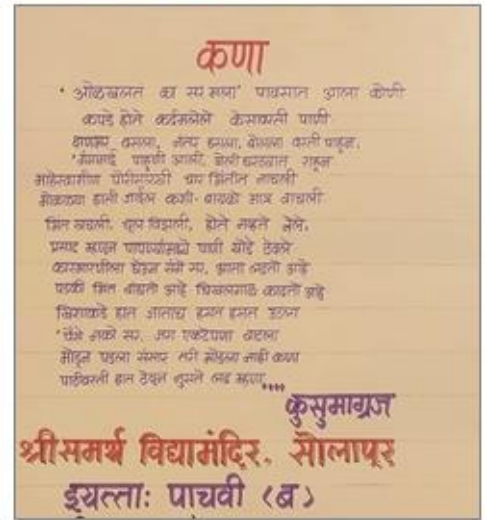 कणा
'ओळखलत का सर मला' पावसात आला कोणी
कपडे होते कर्दमलेले केसावरती पाणी
क्षणभर बसला, नंतर हसला, बोलला वरती पाहून,
'गंगामाई पाहुणी आली, गेली घरट्यात राहून
माहेरवाशीण पोरीसारखी चार भिंतीत नाचली
मोकळ्या हाती जाईल कशी बायको मात्र वाचली
भिंत खचली, चूल विझली, होते नव्हते नेले,
प्रसाद म्हणून पापण्यांमध्ये पाणी थोडे ठेवले
कारभारणीला घेऊन संगे सर, आता लढतो आहे
पडकी भिंत बांधतो आहे चिखलगाळ काढतो आहे
खिशाकडे हात जाताच हसत हसत उठला
'पैसे नको सर, जरा एकटेपणा वाटला
मोडून पडला संसार तरी मोडला नाही कणा
पाठीवरती हात ठेवून नुसते लढ म्हणा....
कुसुमाग्रज
श्रीसमर्थ विद्यामंदिर. सोलापूर
इयत्ताः पाचवी (ब)